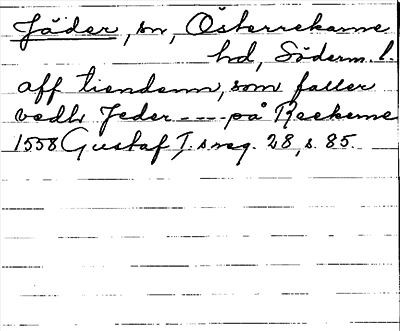 Jäder, sn, Österrekarne
hd, Söderm. l.
aff tiendenn, som faller
vedh Jeder --- på Reekerne
1558 Gustaf I:s reg. 28, s. 85.